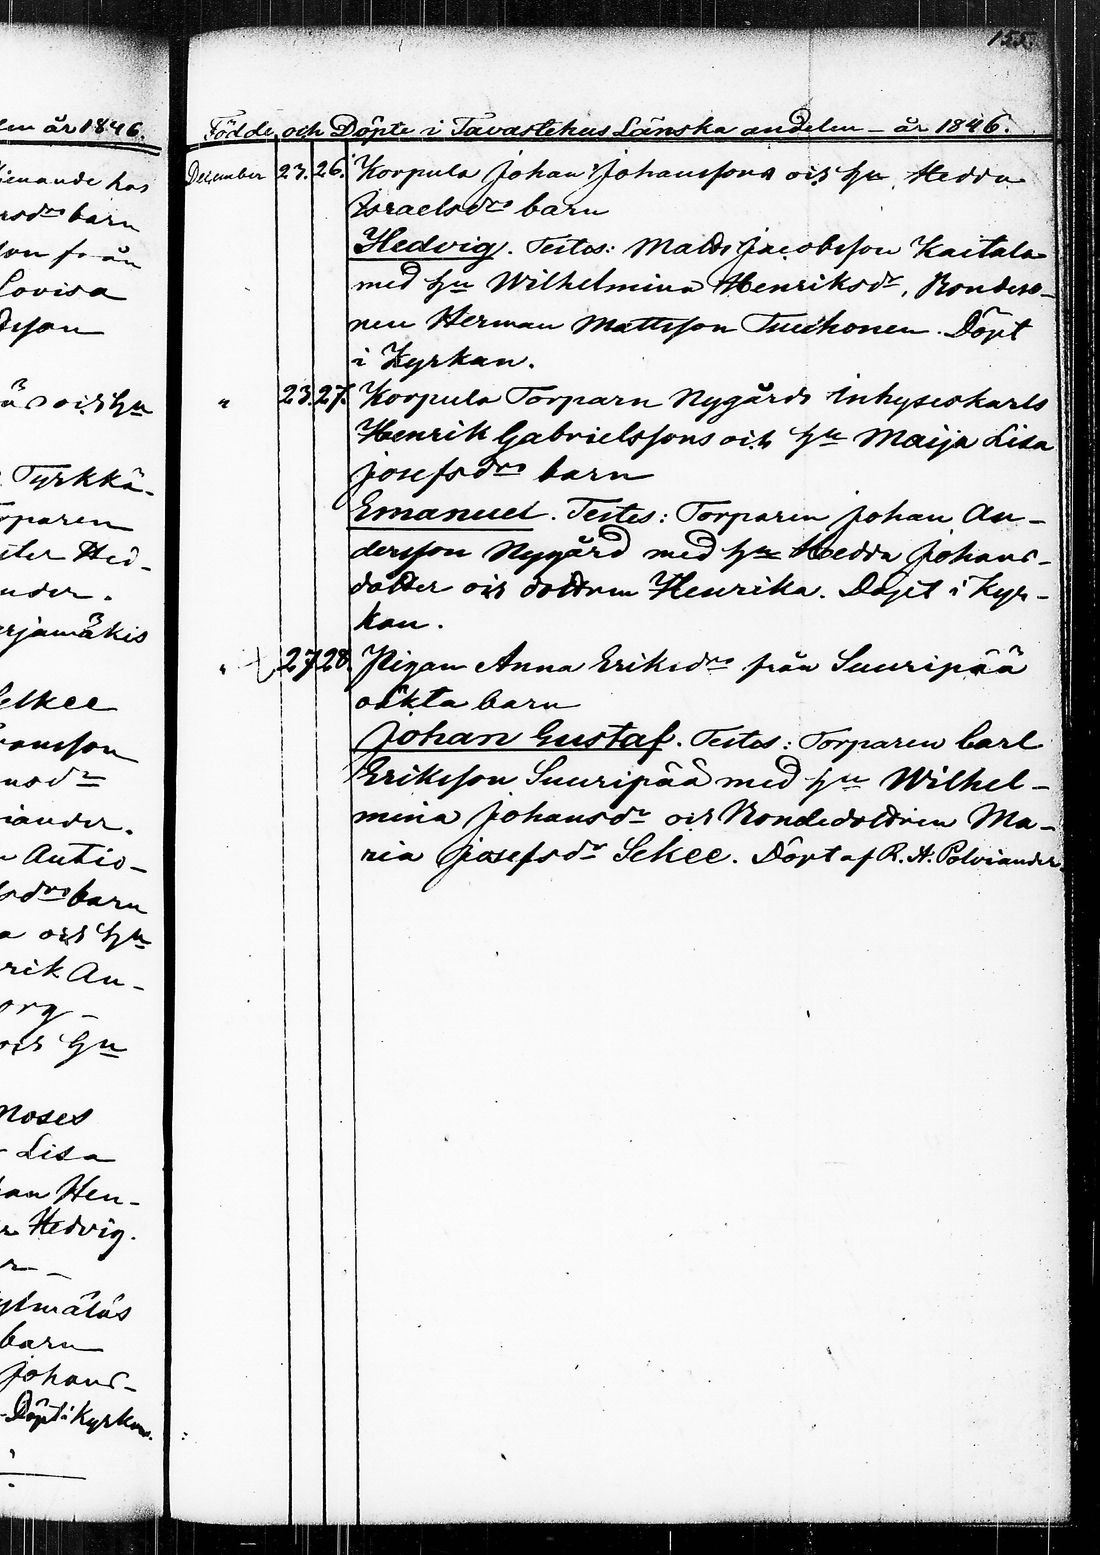 155.
len år 1846.
tjenande hos
rsdrs barn
son från
Lovisa
dsson
och hu
Tyrkkä-
rparen
ster Hed-
nder.
erjamäkis
Selkee
hansson
nsdr
iander.
n Antio-
sdrs barn
a och hu
rik An-
org-
och hu
Moses
Lisa
an Hen-
r Hedvig.
r-
barn
Johans-
Döpt i Kyrkan.
Födde och Döpte i Tavastehus Länska andelen – år 1846.
December 23. 26. Korpula Johan Johanssons och hu Hedda
Israelsdrs barn
Hedvig. Testes: Matts Jacobsson Kaitala
med hu Wilhelmina Henriksdr, Bondeso-
nen Herman Mattsson Tuihonen. Döpt
i Kyrkan.
" 23. 27. Korpula Torparn Nygårds Inhyseskarls
Henrik Gabrielssons och hu Maija Lisa
Josefsdrs barn
Emanuel. Testes: Torparen Johan An-
dersson Nygård med hu Hedda Johans-
dotter och dottren Henrika. Döpt i Kyr-
kan.
" 27 28. Pigan Anna Eriksdrs från Suuripää
oäkta barn
Johan Gustaf. Testes: Torparen Carl
Eriksson Suuripää med hu Wilhel-
mina Johansdr och Bondedottren Ma-
ria Josefsdr Sekee. Döpt af R. H. Polviander.